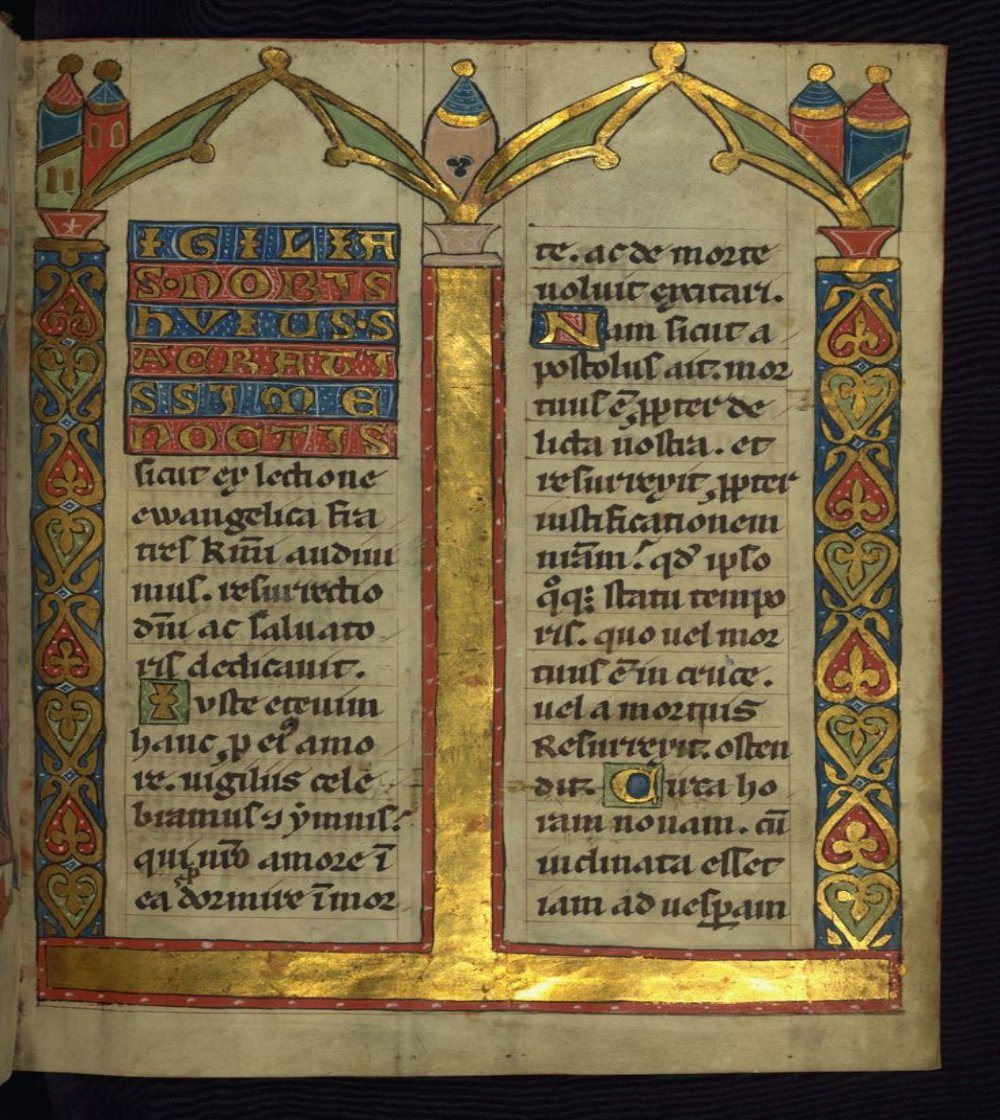 IGILIA
S·NOBIS
hVIUS·S
ACRATI
SSIME
NOCTIS
sicut ex lectione
ewangelica fra
tres k̅m̅i audiui
mus. resurrectio
dn̅i ac saluato
ris dedicauit.
Iuste etenim
hanc ꝓ eiꝰ amo
re. uigiliis cele
bramus ⁊ ẏmnis.
qui nr̅o amore ī
ea dormire ī mor
te. ac de morte
uoluit excitari.
Nam sicut a
postolus ait: mor
tuus ē ꝓpter de
licta nostra. et
resurrexit ꝓpter
iustificationem
nr̅am. qd̅ ipso
q̊q: statu tempo
ris. quo uel mor
tuus ē in cruce.
uel a mortuis
Resurrexit: osten
dit. Circa ho
ram nonam. cū
inclinata esset
iam ad uesꝑam